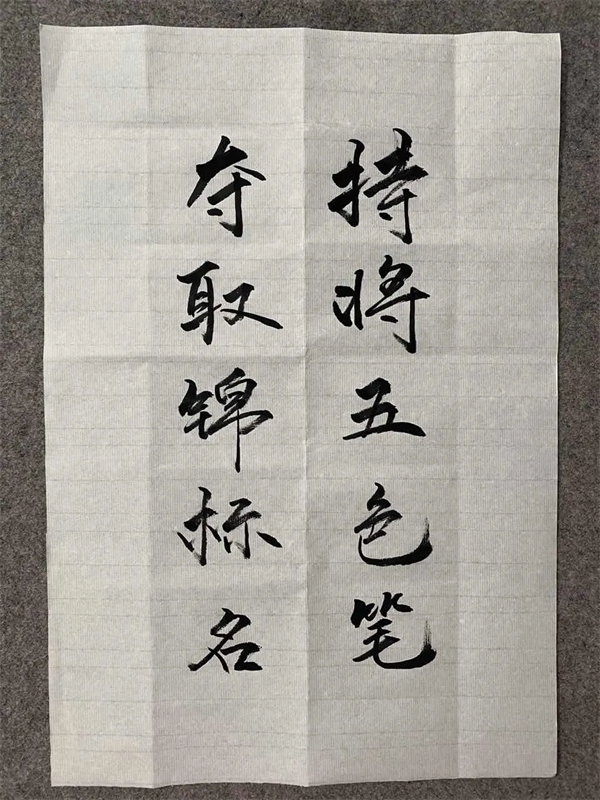 持将五色笔
夺取锦标名